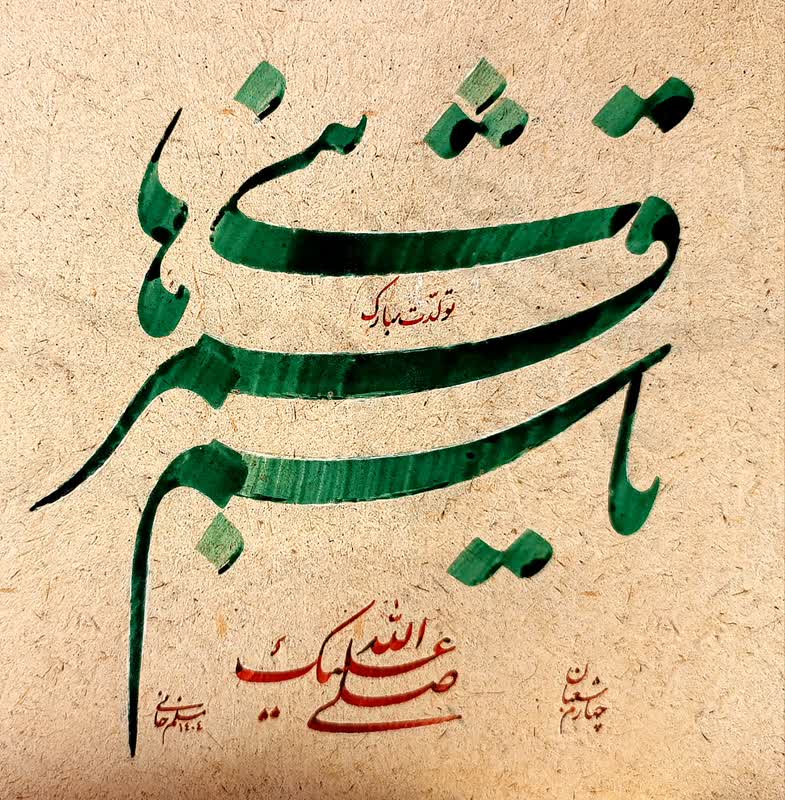 یا قمر بنی هاشم
تولّدت مبارک
صلی الله علیک
چهارم شعبان
۱۴۰۴